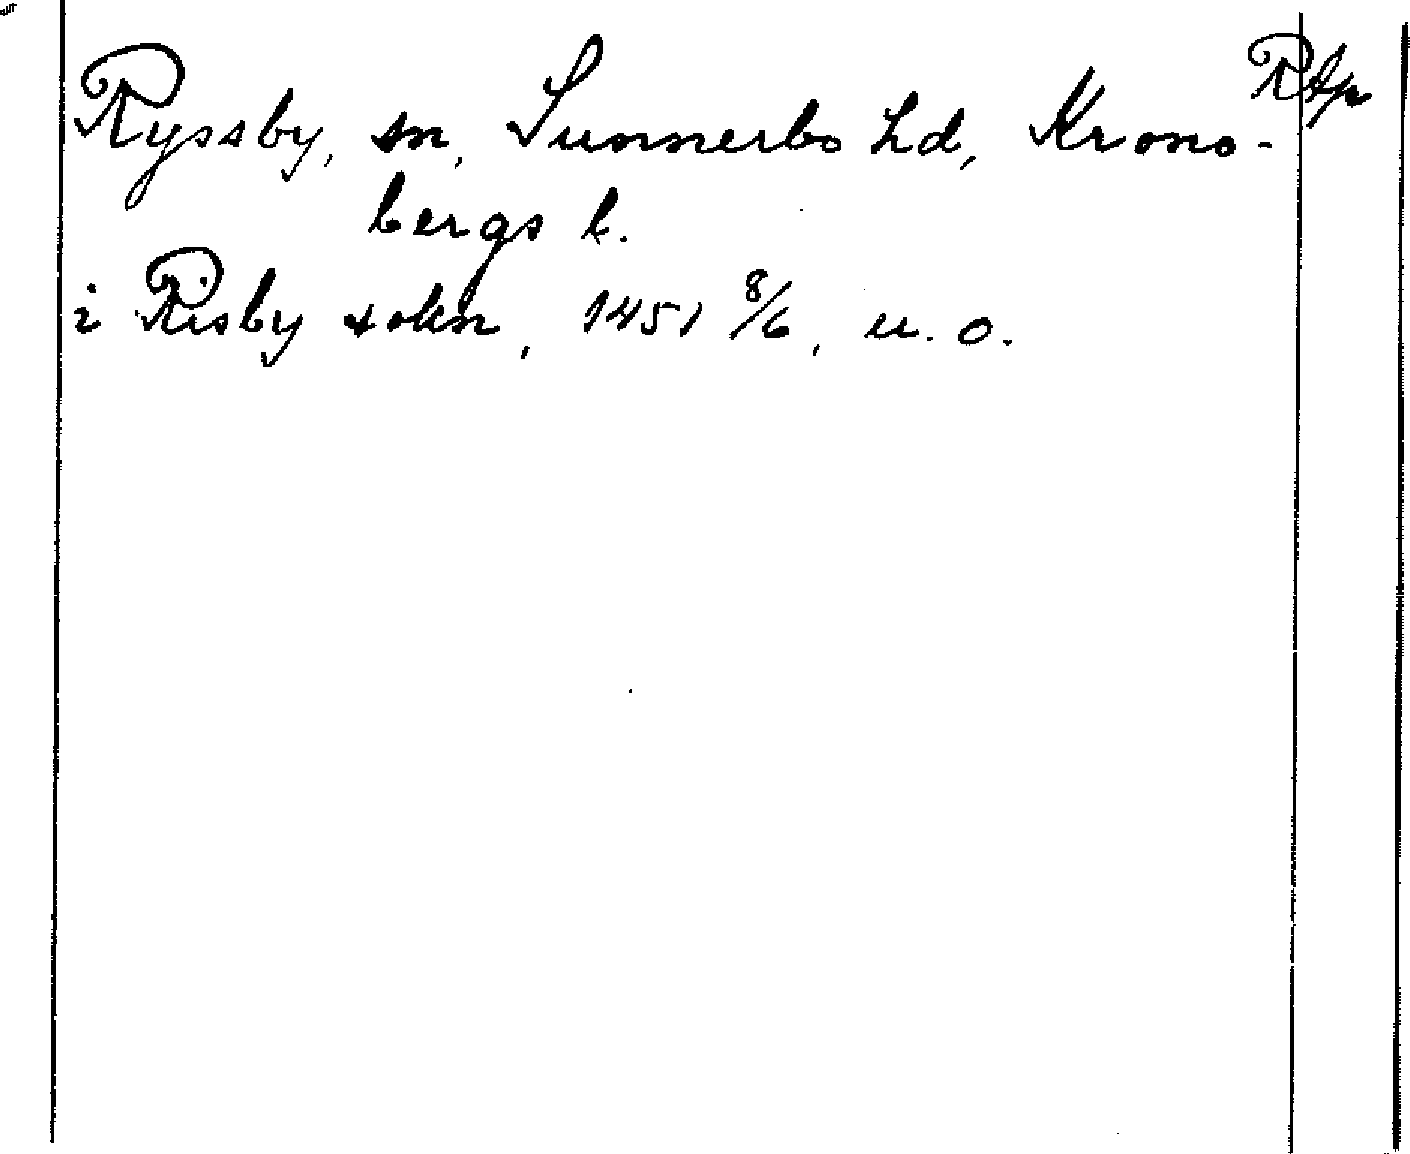 RAp
Ryssby, sn, Sunnerbo hd, Krono-
bergs l.
i Risby sokn, 1451 8/6, u. o.